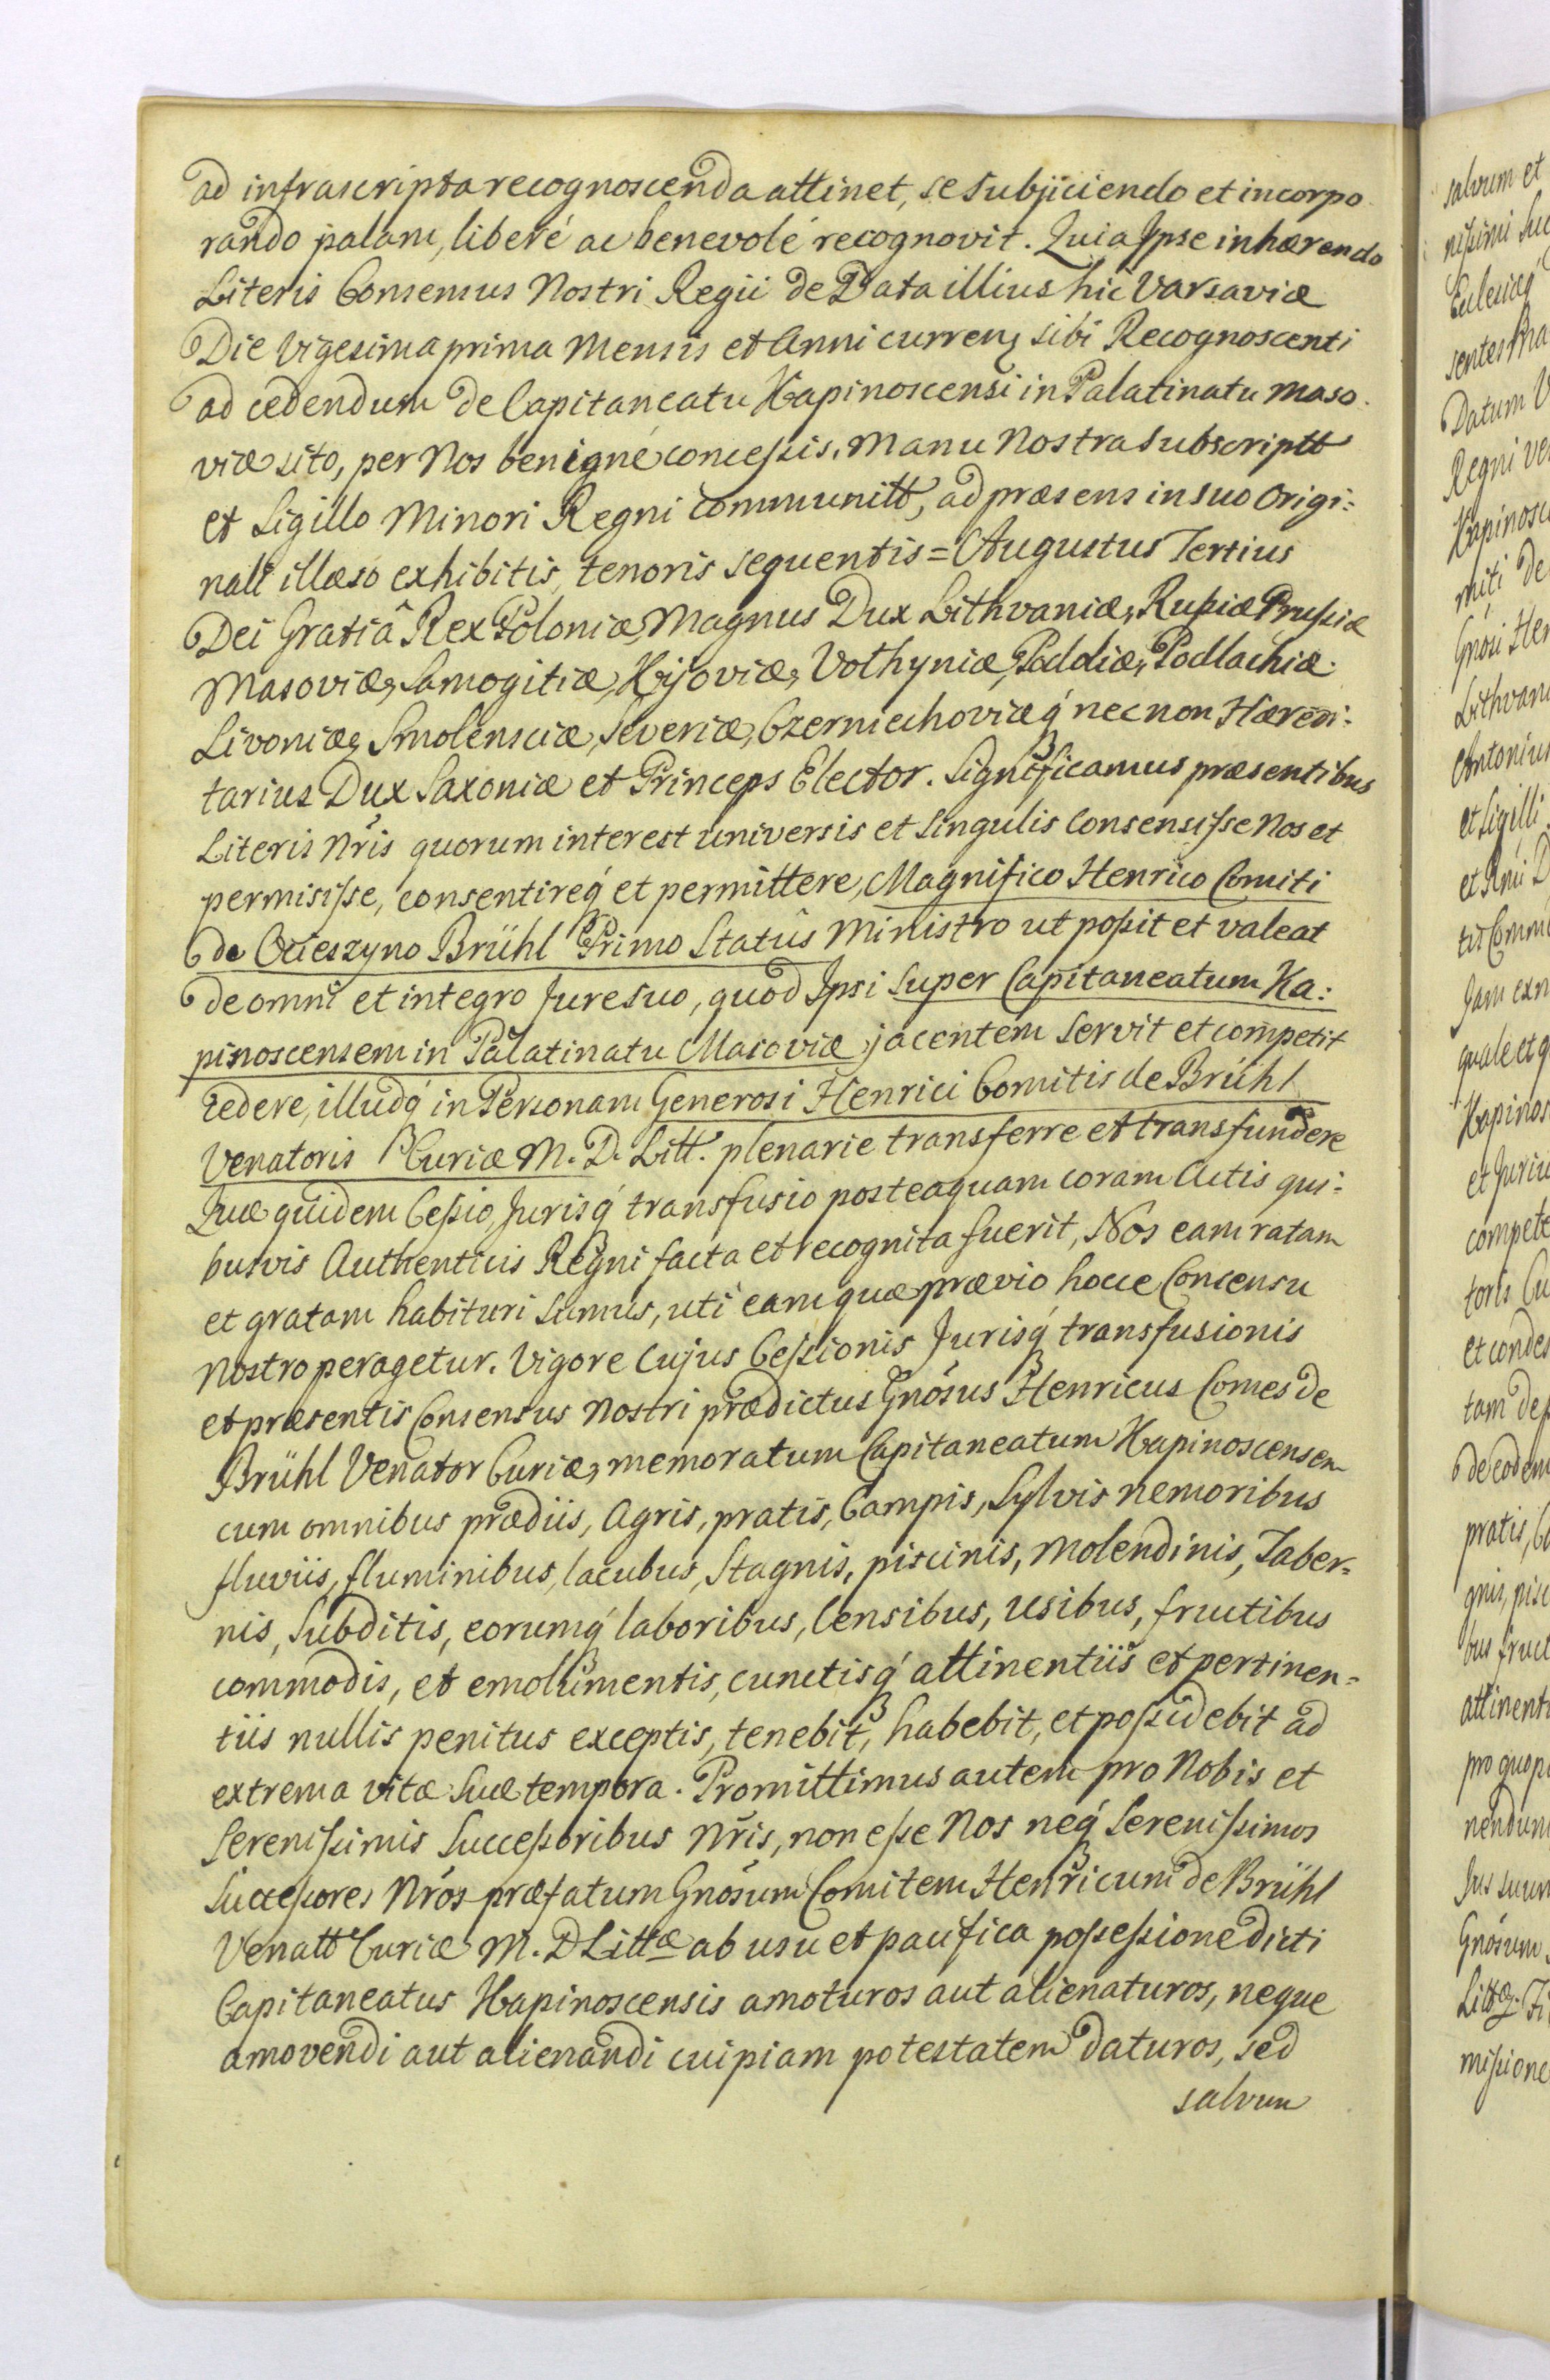 ad infrascripta recognoscenda attinet, se subjiciendo et incorpo
rando palam, liberé ac benevolé recognovit. Quia Ipse inhærendo
Literis Consensus Nostri Regii de Data illius hic Varsaviæ
Die Vigesima prima Mensis et Anni curren sibi Recognoscenti
ad cedendum de Capitaneatu Kapinoscensi in Palatinatu Maso
viæ sito, per Nos benigné concessis, Manu Nostra Subscriptt
et Sigillo Minori Regni Communitt, ad præsens in suo Origi:
nali illæso exhibitis, tenoris sequentis = Augustus Tertius
Dei Gratiâ Rex Poloniæ, Magnus Dux Lithvaniæ, Russiæ Prussiæ
Masoviæ, Samogitiæ, Kijoviæ, Volhyniæ, Podoliæ, Podlachiæ.
Livoniæ, Smolensciæ, Severiæ, Czerniechoviæq́ nec non Hæredi:
tarius Dux Saxoniæ et Princeps Elector. Significamus præsentibus
Literis Nr̃is quorum interest universis et singulis Consensisse Nos et
permisisse, consentireq́ et permittere, Magnifico Henrico Comiti
de Ocieszyno Brühl Primo Statûs Ministro ut possit et valeat
de omni et integro Jure suo, quod Ipsi super Capitaneatum Ka:
pinoscensem in Palatinatu Masoviæ jacentem servit et competit
cedere, illudq́ in Personam Generosi Henrici Comitis de Brühl
Venatoris Curiæ M. D. Litt. plenarie transferre et transfundere
Quæ quidem Cessio, Jurisq́ transfusio posteaquam coram Actis qui:
busvis Authenticis Regni facta et recognita fuerit, Nos eam ratam
et gratam habituri sumus, uti eam quæ prævio hocce Consensu
Nostro peragetur. Vigore Cujus Cessionis Jurisq́ transfusionis
et præsentis Consensus Nostri prædictus Gnósus Henricus Comes de
Brühl Venator Curiæ, memoratum Capitaneatum Kapinoscensem
cum omnibus prædiis, Agris, pratis, Campis, Sylvis nemoribus
fluviis, fluminibus, lacubus, Stagnis, piscinis, Molendinis, Taber=
nis, Subditis, eorumq́ laboribus, Censibus, usibus, fructibus
commodis, et emolumentis, cunctisq́ attinentiis et pertinen=
tiis nullis penitus exceptis, tenebit, habebit, et possidebit ad
extrema vitæ suæ tempora. Promittimus autem pro Nobis et
Serenissimis Successoribus Nr̃is, non esse Nos neq́ Serenissimos
Successores Nr̃os præfatum Gnósum Comitem Henricum de Brühl
Venatt Curiæ M. D Littæ ab usu et pacifica possessione dicti
Capitaneatus Kapinoscensis amoturos aut alienaturos, neque
amovendi aut alienandi cuipiam potestatem daturos, sed
salvum
salvum et
nissimi Suc
Ecclesiæq́
sentes Ma
Datum V
Regni ve
Kapinosc
miti de
Gnósi Hen
Lithvan
Antonius
et Sigilli
et Anni D
tis Comm
Jam exn
quale et q
Kapinos
et Juris
compete
toris Cu
et condes
tam dep
de eodem
pratis, Ca
gnis, pisc
bus fruct
attinenti
pro quop
nendum
Jus suum
Gnósum
Littæ. Ti
missione